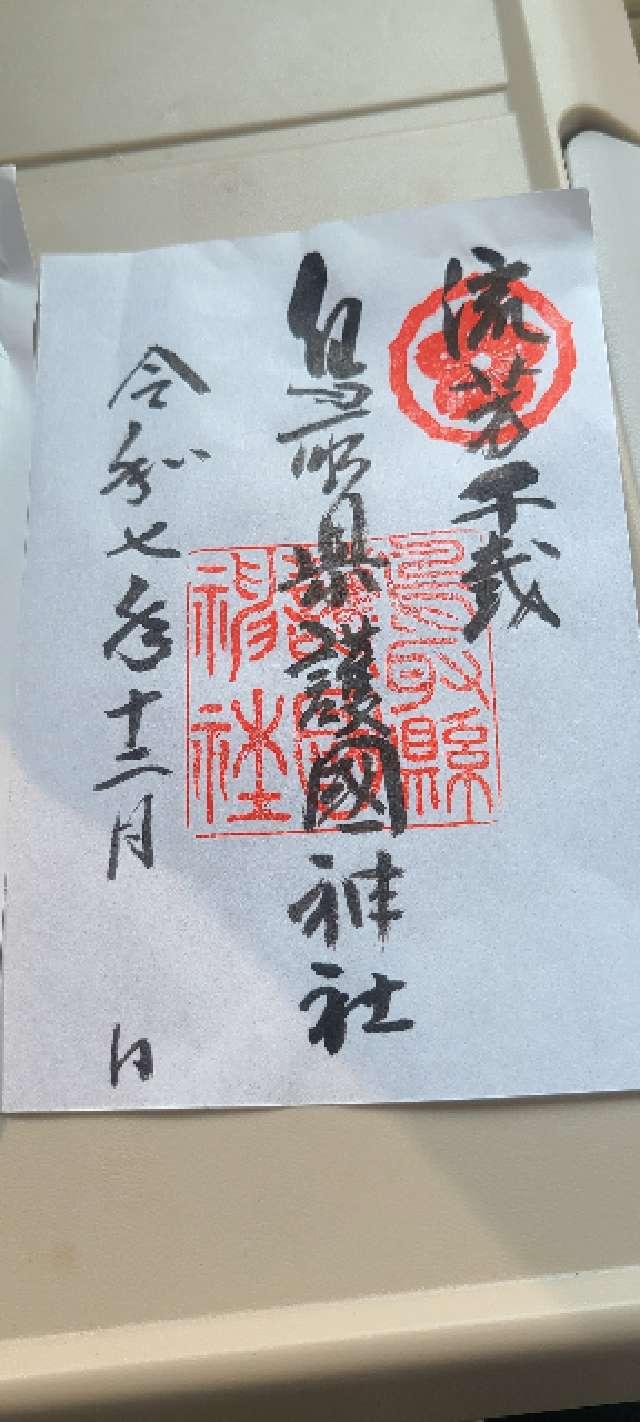 流芳千載
鳥取県護國神社
鳥取縣
護國
神社
令和七年十二月 日